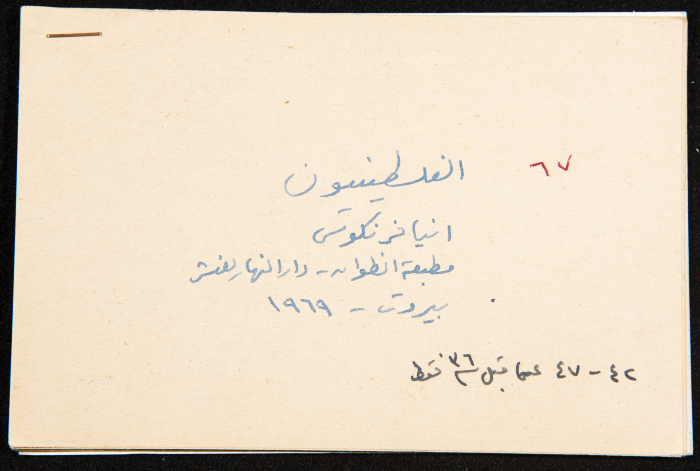 ٦٧
الفلسطينيون
انيا فرنكوس
مطبعة انطوان - دار النهار للنشر
بيروت - ١٩٦٩
٤٢ - ٤٧ عما قبل ٣٦ فقط